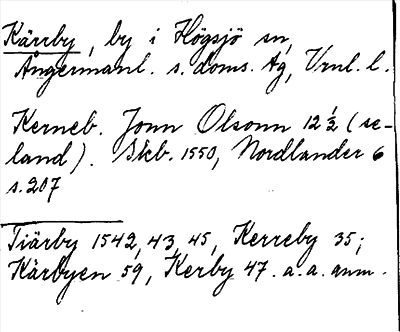 Kärrby, by i Högsjö sn,
Ångermanl. s. doms. tg, Vrnl. l.
Kerneb. Jonn Olsonn 12 ½ (se-
land). Skb. 1550, Nordlander 6
s. 207
Tiärby 1542, 43, 45, Kerreby 35;
Kärbyen 59, Kerby 47. a.a. anm.